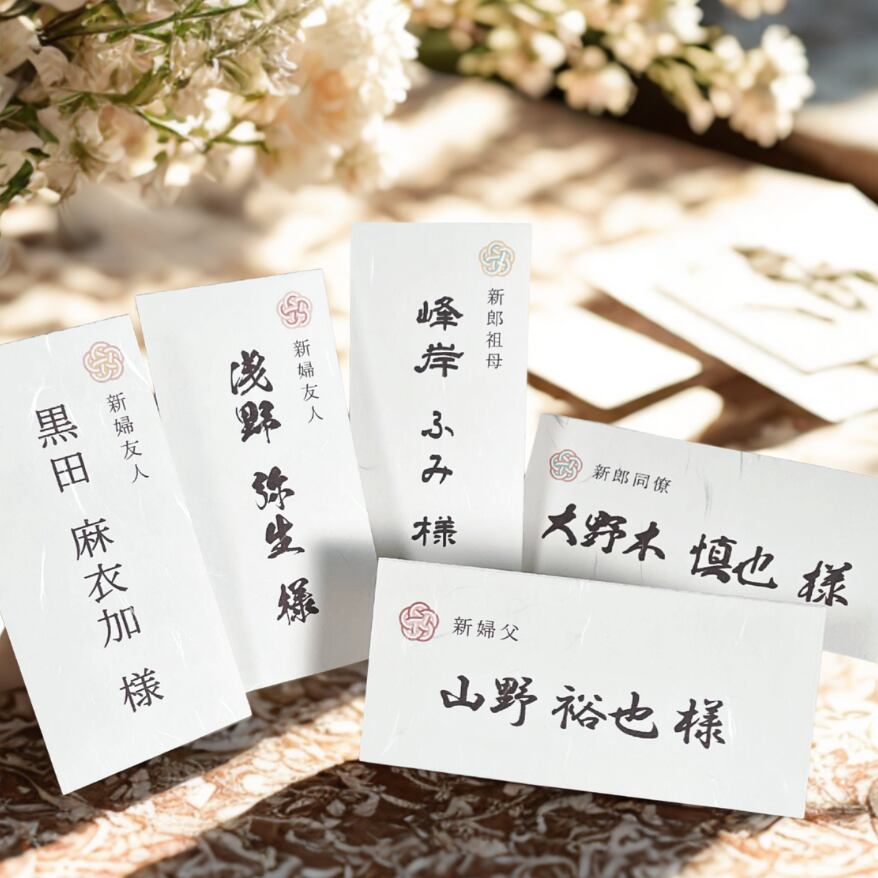 新婦友人
黒田 麻衣加 様
新婦友人
浅野 弥生 様
新郎祖母
峰岸 ふみ 様
新郎同僚
大野木 慎也 様
新婦父
山野 裕也 様